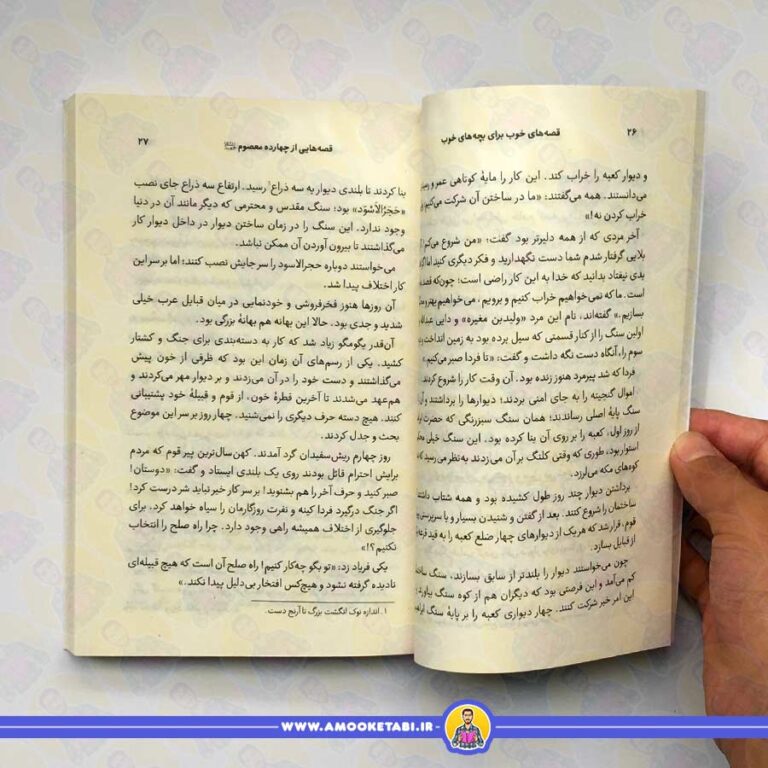 ۲۶
قصه‌های خوب برای بچه‌های خوب
و دیوار کعبه را خراب کند. این کار را مایهٔ کوتاهی عمر و
می‌دانستند. همه می‌گفتند: «ما در ساختن آن شرکت می‌کنیم
خراب کردن نه!»
آخر مردی که از همه دلیرتر بود گفت: «من شروع می‌کنم
بلایی گرفتار شدم شما دست نگهدارید و فکر دیگری کنید اما اگر
بدی نیفتاد بدانید که خدا به این کار راضی است؛ چون‌که قصد
است. ما که نمی‌خواهیم خراب کنیم و برویم، می‌خواهیم بهتر و
بسازیم.» گفته‌اند، نام این مرد «ولیدبن مغیره» و دایی
اولین سنگ را از کنار قسمتی که سیل برده بود به زمین انداخت
سوم را، آنگاه دست نگه داشت و گفت: «تا فردا صبر می‌کنیم.»
فردا که شد پیرمرد هنوز زنده بود. آن وقت کار را شروع کردند.
اموال گنجینه را به جای امنی بردند؛ دیوارها را برداشتند و
سنگ پایهٔ اصلی رساندند؛ همان سنگ سبزرنگی که حضرت
از روز اول، کعبه را بر روی آن بنا کرده بود. این سنگ خیلی
استوار بود، طوری که وقتی کلنگ بر آن می‌زدند به‌نظر می‌رسید
کوه‌های مکه می‌لرزد.
برداشتن دیوار چند روز طول کشیده بود و همه شتاب داشتند
ساختمان را شروع کنند. بعد از گفتن و شنیدن بسیار و با سرپرستی
قوم، قرار شد که هر یک از دیوارهای چهار ضلع کعبه را به قید
از قبایل بسازد.
چون می‌خواستند دیوار را بلندتر از سابق بسازند، سنگ
کم می‌آمد و این فرصتی بود که دیگران هم از کوه سنگ بیاورند
این امر خیر شرکت کنند. چهار دیواری کعبه را بر پایهٔ سنگ
قصه‌هایی از چهارده معصوم
۲۷
بنا کردند تا بلندی دیوار به سه ذراع۱ رسید. ارتفاع سه ذراع جای نصب
«حَجَرُالاَسْوَد» بود؛ سنگ مقدس و محترمی که دیگر مانند آن در دنیا
وجود ندارد. این سنگ را در زمان ساختن دیوار در داخل دیوار کار
می‌گذاشتند تا بیرون آوردن آن ممکن نباشد.
می‌خواستند دوباره حجرالاسود را سر جایش نصب کنند؛ اما بر سر این
کار اختلاف پیدا شد.
آن روزها هنوز فخرفروشی و خودنمایی در میان قبایل عرب خیلی
شدید و جدی بود. حالا این بهانه هم بهانهٔ بزرگی بود.
آن‌قدر بگومگو زیاد شد که کار به دسته‌بندی برای جنگ و کشتار
کشید. یکی از رسم‌های آن زمان این بود که ظرفی از خون پیش
می‌گذاشتند و دست خود را در آن می‌زدند و بر دیوار مهر می‌کردند و
هم‌عهد می‌شدند تا آخرین قطرهٔ خون، از قوم و قبیلهٔ خود پشتیبانی
کنند. هیچ دسته حرف دیگری را نمی‌شنید. چهار روز بر سر این موضوع
بحث و جدل کردند.
روز چهارم ریش‌سفیدان گرد آمدند. کهن‌سال‌ترین پیر قوم که مردم
برایش احترام قائل بودند روی یک بلندی ایستاد و گفت: «دوستان!
صبر کنید و حرف آخر را هم بشنوید! بر سر کار خیر نباید شر درست کرد!
اگر جنگ درگیرد فردا کینه و نفرت روزگارمان را سیاه خواهد کرد. برای
جلوگیری از اختلاف همیشه راهی وجود دارد. چرا راه صلح را انتخاب
نکنیم؟!»
یکی فریاد زد: «تو بگو چه‌کار کنیم! راه صلح آن است که هیچ قبیله‌ای
نادیده گرفته نشود و هیچ‌کس افتخار بی‌دلیل پیدا نکند.»
۱. اندازه نوک انگشت بزرگ تا آرنج دست.
WWW.AMOOKETABI.IR